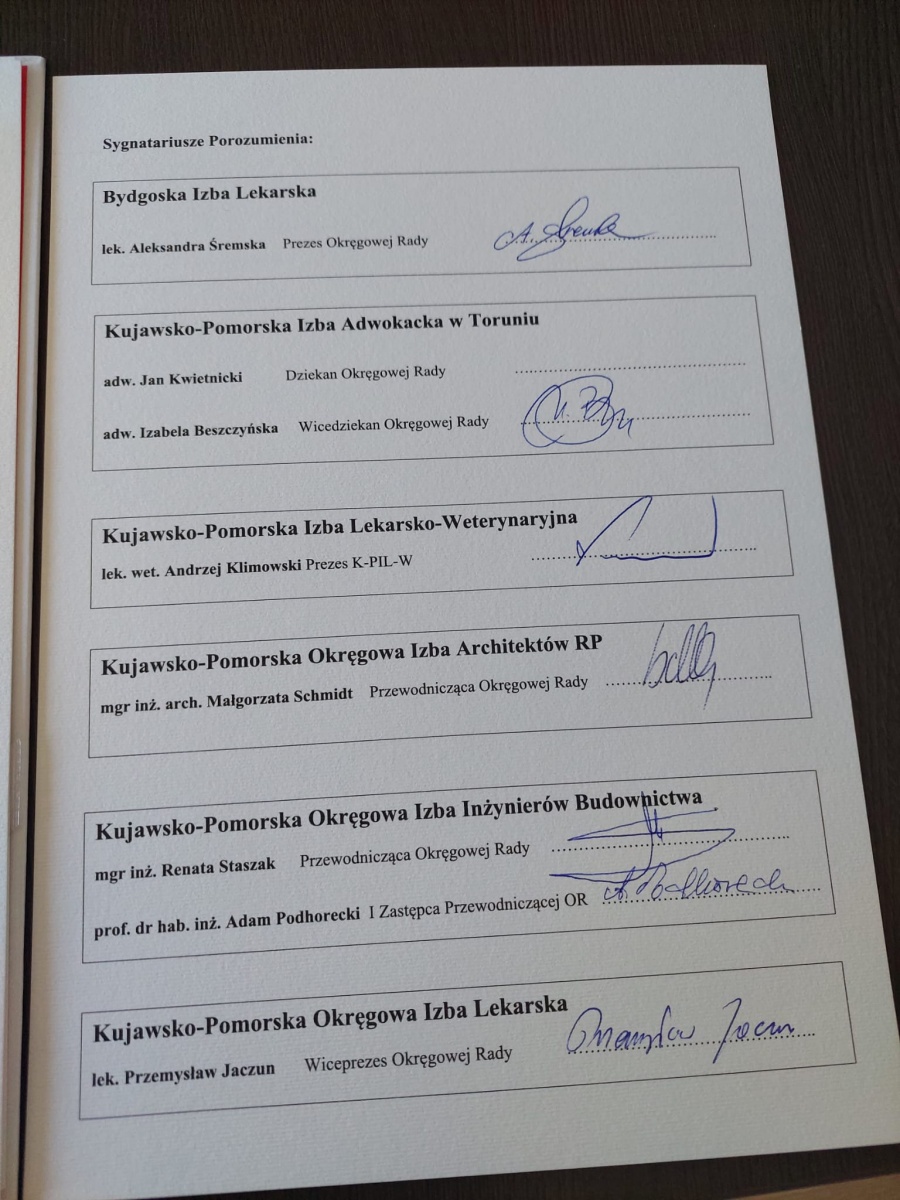 Sygnatariusze Porozumienia:
Bydgoska Izba Lekarska
lek. Aleksandra Śremska Prezes Okręgowej Rady
Kujawsko-Pomorska Izba Adwokacka w Toruniu
adw. Jan Kwietnicki Dziekan Okręgowej Rady
adw. Izabela Beszczyńska Wicedziekan Okręgowej Rady
Kujawsko-Pomorska Izba Lekarsko-Weterynaryjna
lek. wet. Andrzej Klimowski Prezes K-PIL-W
Kujawsko-Pomorska Okręgowa Izba Architektów RP
mgr inż. arch. Małgorzata Schmidt Przewodnicząca Okręgowej Rady
Kujawsko-Pomorska Okręgowa Izba Inżynierów Budownictwa
mgr inż. Renata Staszak Przewodnicząca Okręgowej Rady
prof. dr hab. inż. Adam Podhorecki I Zastępca Przewodniczącej OR
Kujawsko-Pomorska Okręgowa Izba Lekarska
lek. Przemysław Jaczun Wiceprezes Okręgowej Rady